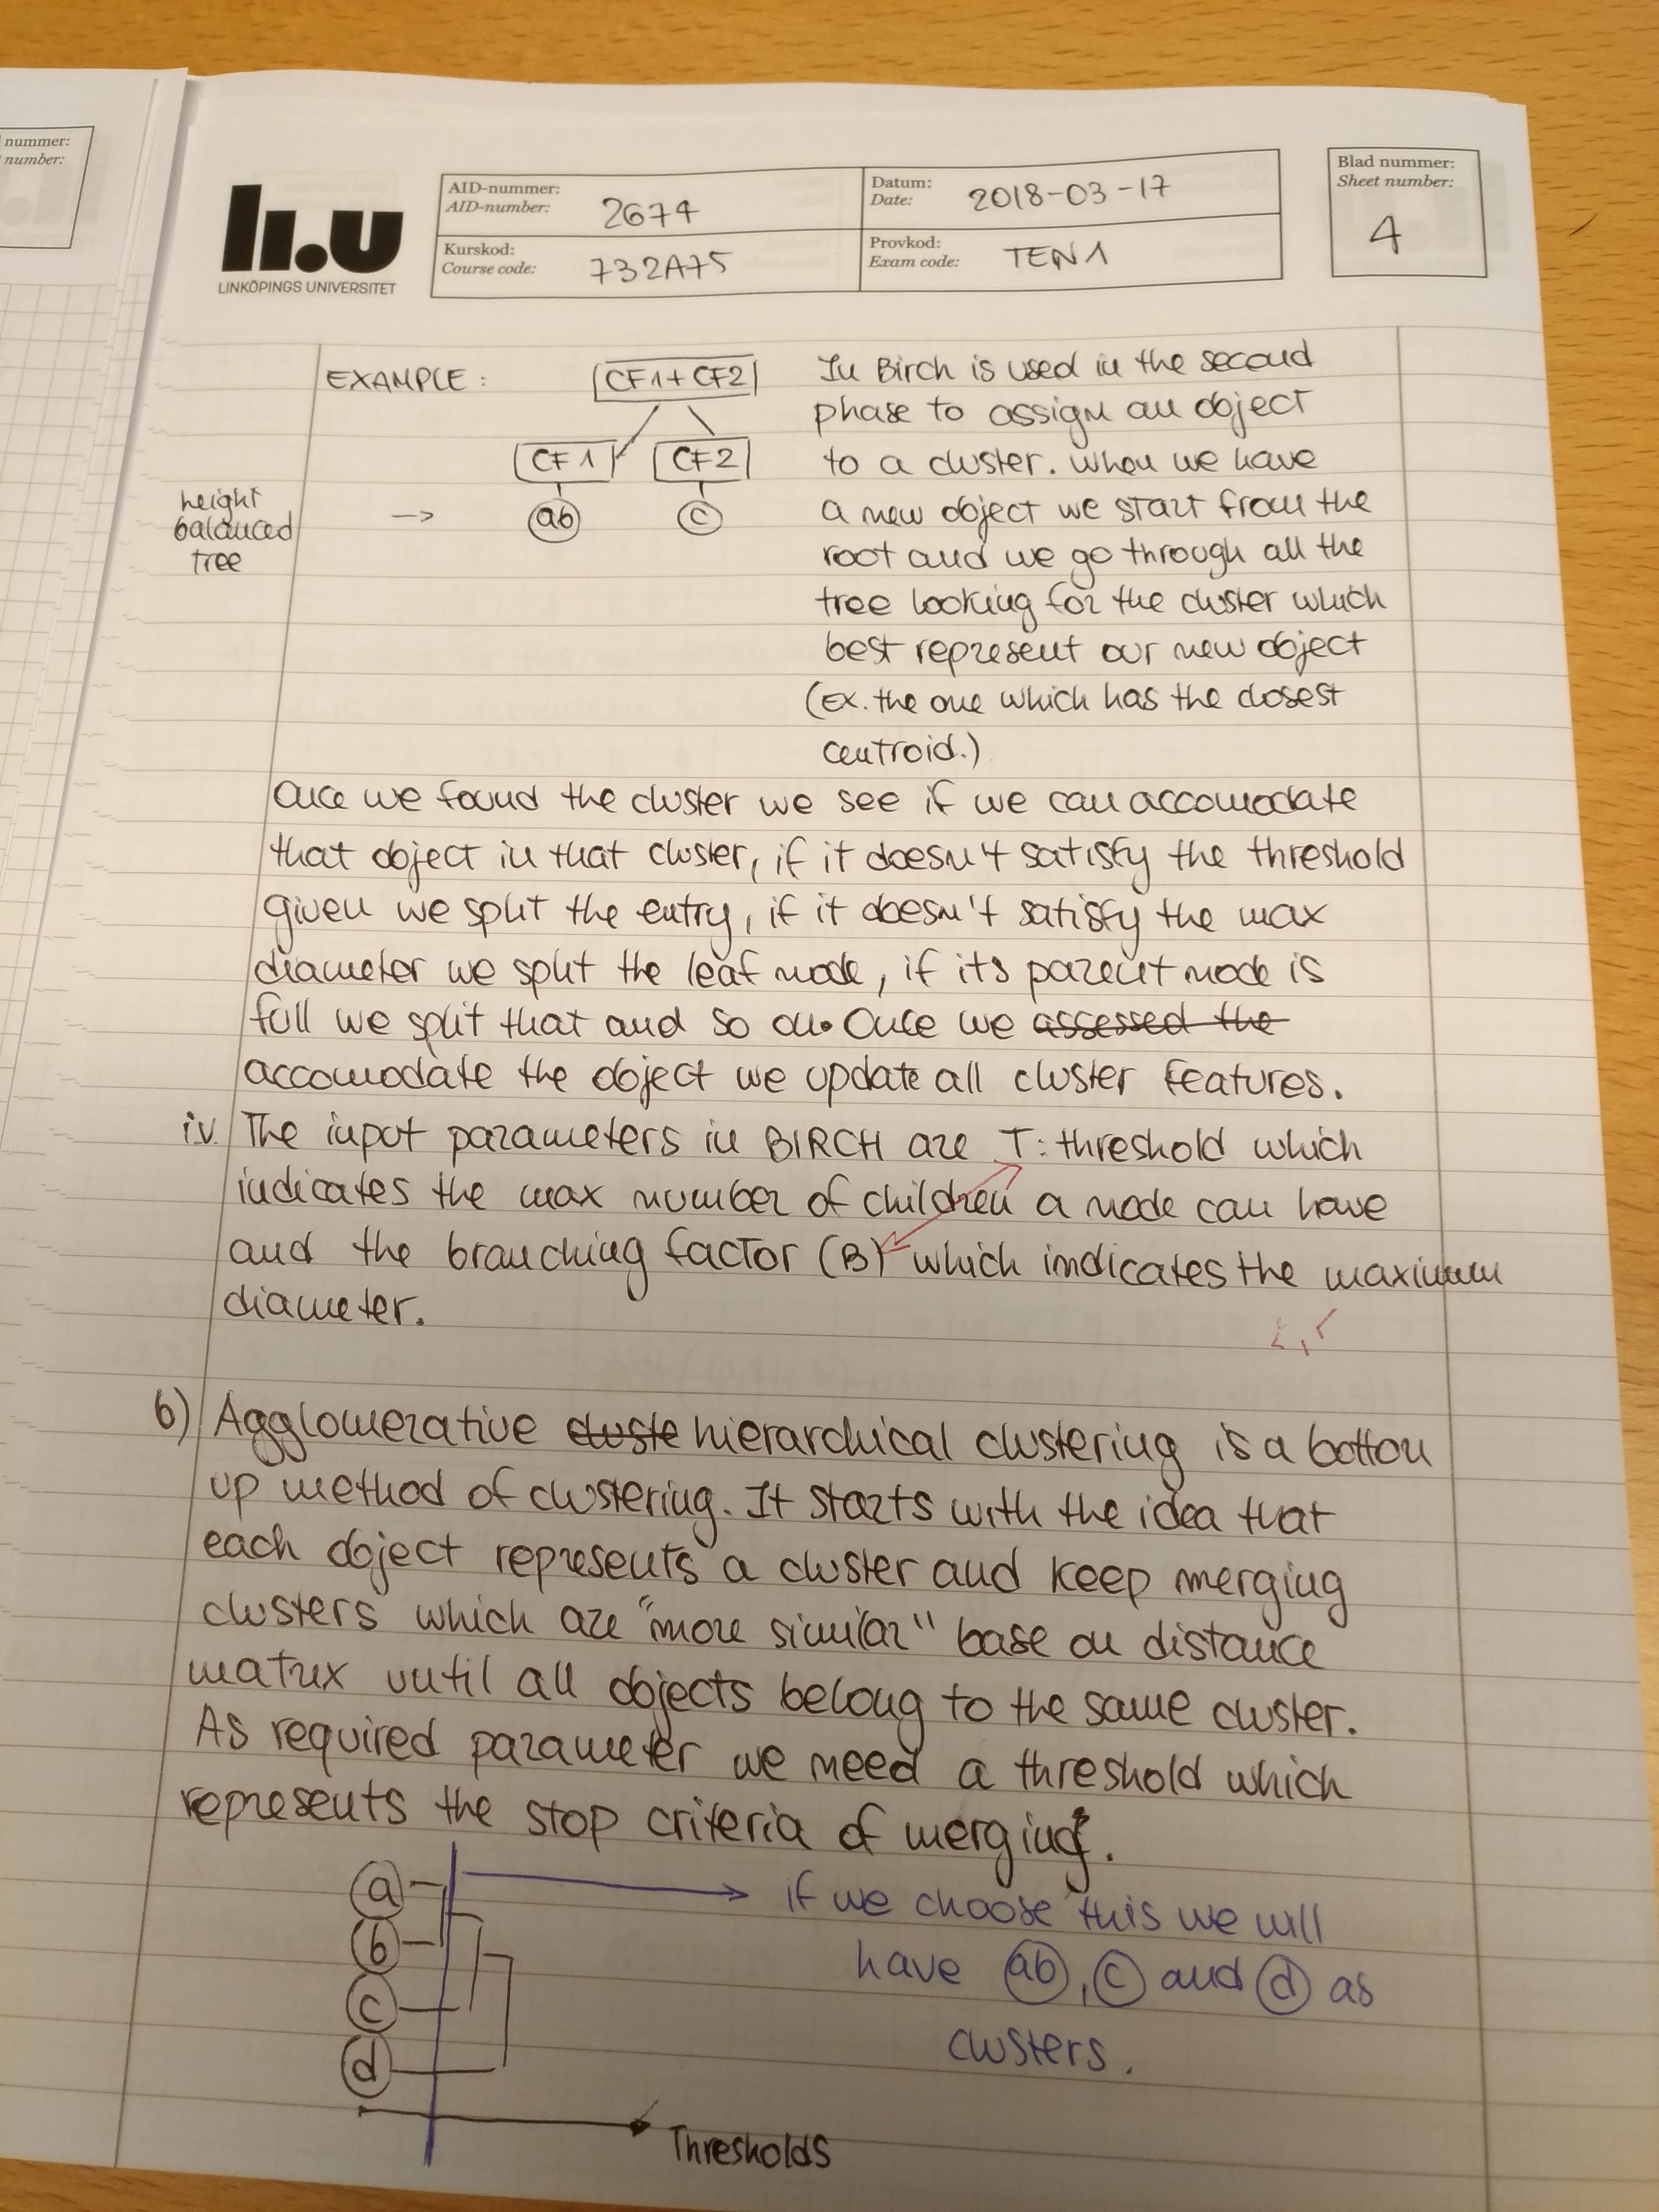 nummer:
number:
li.u
LINKÖPINGS UNIVERSITET
AID-nummer:
AID-number:
2674
Datum:
Date:
2018-03-17
Blad nummer:
Sheet number:
4
Kurskod:
Course code:
732A75
Provkod:
Exam code:
TEN1
EXAMPLE:
CF1+CF2
CF1
CF2
ab
c
height
balanced
tree
->
In Birch is used in the second
phase to assign an object
to a cluster. When we have
a new object we start from the
root and we go through all the
tree looking for the cluster which
best represent our new object
(Ex. the one which has the closest
centroid.)
Once we found the cluster we see if we can accomodate
that object in that cluster, if it doesn't satisfy the threshold
given we split the entry, if it doesn't satisfy the max
diameter we split the leaf node, if its parent node is
full we split that and so on. Once we assessed the
accomodate the object we update all cluster features.
iv. The input parameters in BIRCH are T: threshold which
indicates the max number of children a node can have
and the branching factor (B) which indicates the maximum
diameter.
b) Agglomerative cluste hierarchical clustering is a bottom
up method of clustering. It starts with the idea that
each object represents a cluster and keep merging
clusters which are "more similar" base on distance
matrix until all objects belong to the same cluster.
As required parameter we need a threshold which
represents the stop criteria of merging.
a
b
c
d
if we choose this we will
have ab, c and d as
clusters.
Thresholds